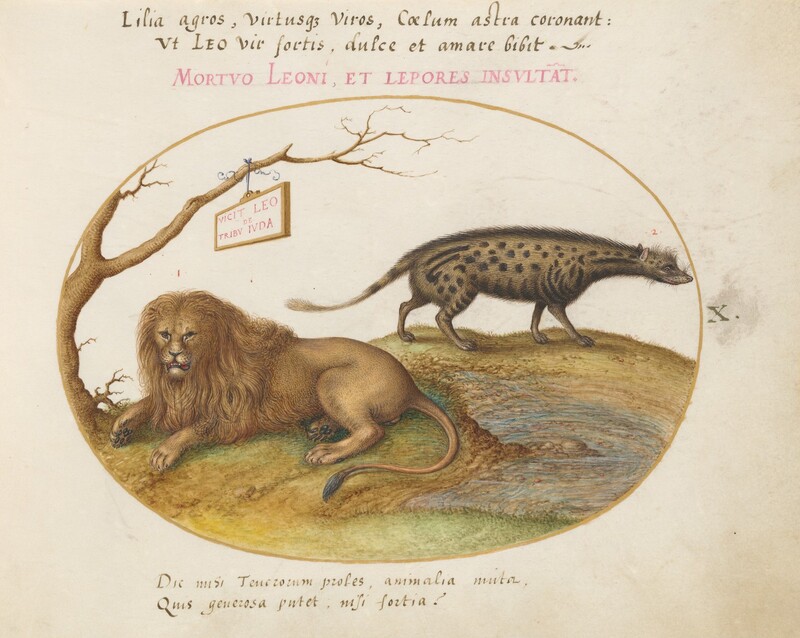 Lilia agros, virtusq3 Viros, Cœlum astra coronant:
Vt LEO Vir fortis, dulce et amare bibit
MORTVO LEONI, ET LEPORES INSVLTÃT.
VICIT LEO
DE
TRIBV IVDA
1
2
X.
Dic mihi Teucrorum proles, animalia muta,
Quis generosa putet, nisi fortia?